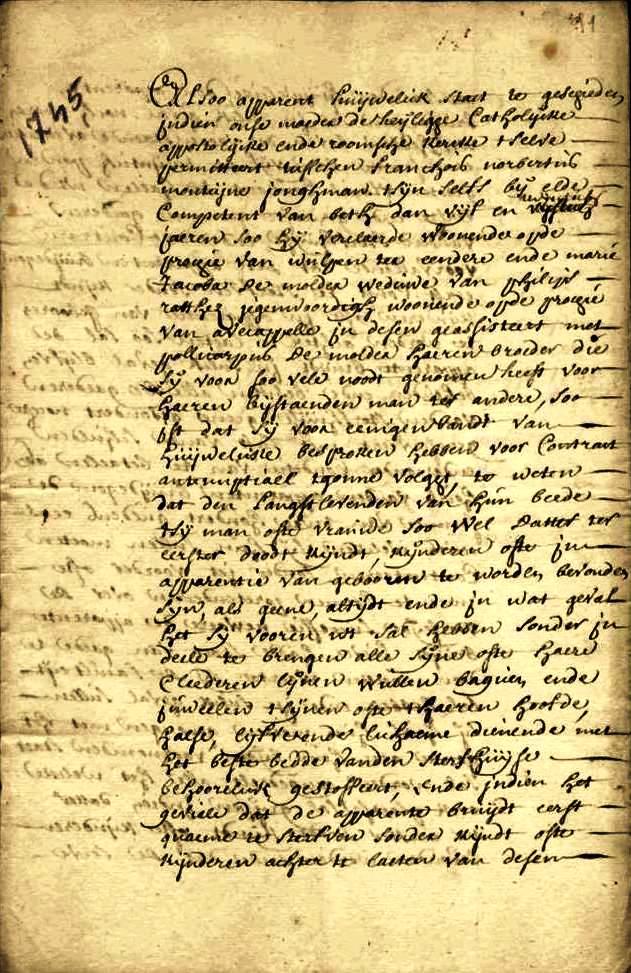 11
1745
Alsoo apparent huijwelick staet te geschieden
jndien onse moeder de heijlighe Catholijcke
appostolijcke ende roomsche kercke tselve
permitteert tusschen franchois norbertus
montaijne jonghman tsijn selfs bij elde
Competent van bethz dan vijf en
jaeren soo hij verclaerde woonende opde
prochie van wulpen ter eendere ende marie
Jacoba de molder weduwe van philips
ratthez jegenwoordigh woonende opde prochie
van avecappelle jn desen geassisteert met
pollicarpus de molder haeren broeder die
sij voor soo vele noodt genomen heeft voor
haeren bijstaenden man ter andere, soo
jst dat sij voor eenigen bandt van
huijwelijcke besproken hebben voor Contract
antenuptiael tgonne volght, te weten
dat den langstlevenden van hun beede
tsij man ofte vrauwe soo wel datter ter
eerster doodt kijndt, kijnderen ofte jn
apparentie van gebooren te worden bevonden
sijn, als geene, altijdt ende jn wat geval
het sij vooren ut sal hebben sonder jn
deele te brengen alle sijne ofte haere
Cleederen lijnen wullen baguen ende
juweelen tsijnen ofte thaeren hoofde,
halse, lijfve ende lichaeme dienende met
het beste bedde vanden sterfhuijse
behoorelick gestoffeert, ende jndien het
geviele dat de apparente bruijdt eerst
quaeme te sterfven sonder kijndt ofte
kijnderen achter te laeten van desen